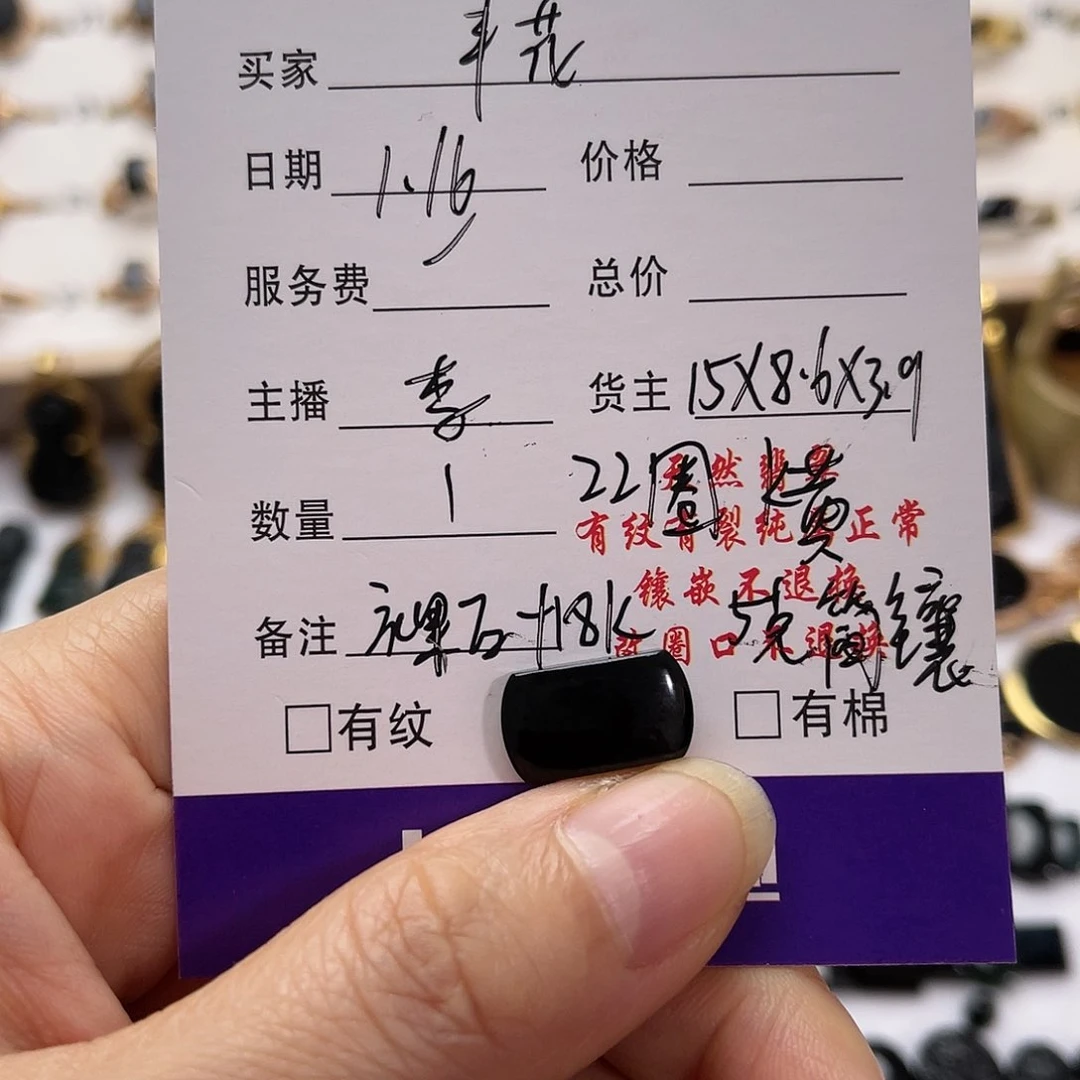 买家 丰花
日期 1.16 价格
服务费 总价
主播 李 货主 15X8.6X3.9
数量 1 22圈 黄
天然翡翠
有纹有裂纯属正常
镶嵌不退换
改圈口不退换
备注 +18K 5克 镶
有纹 有棉